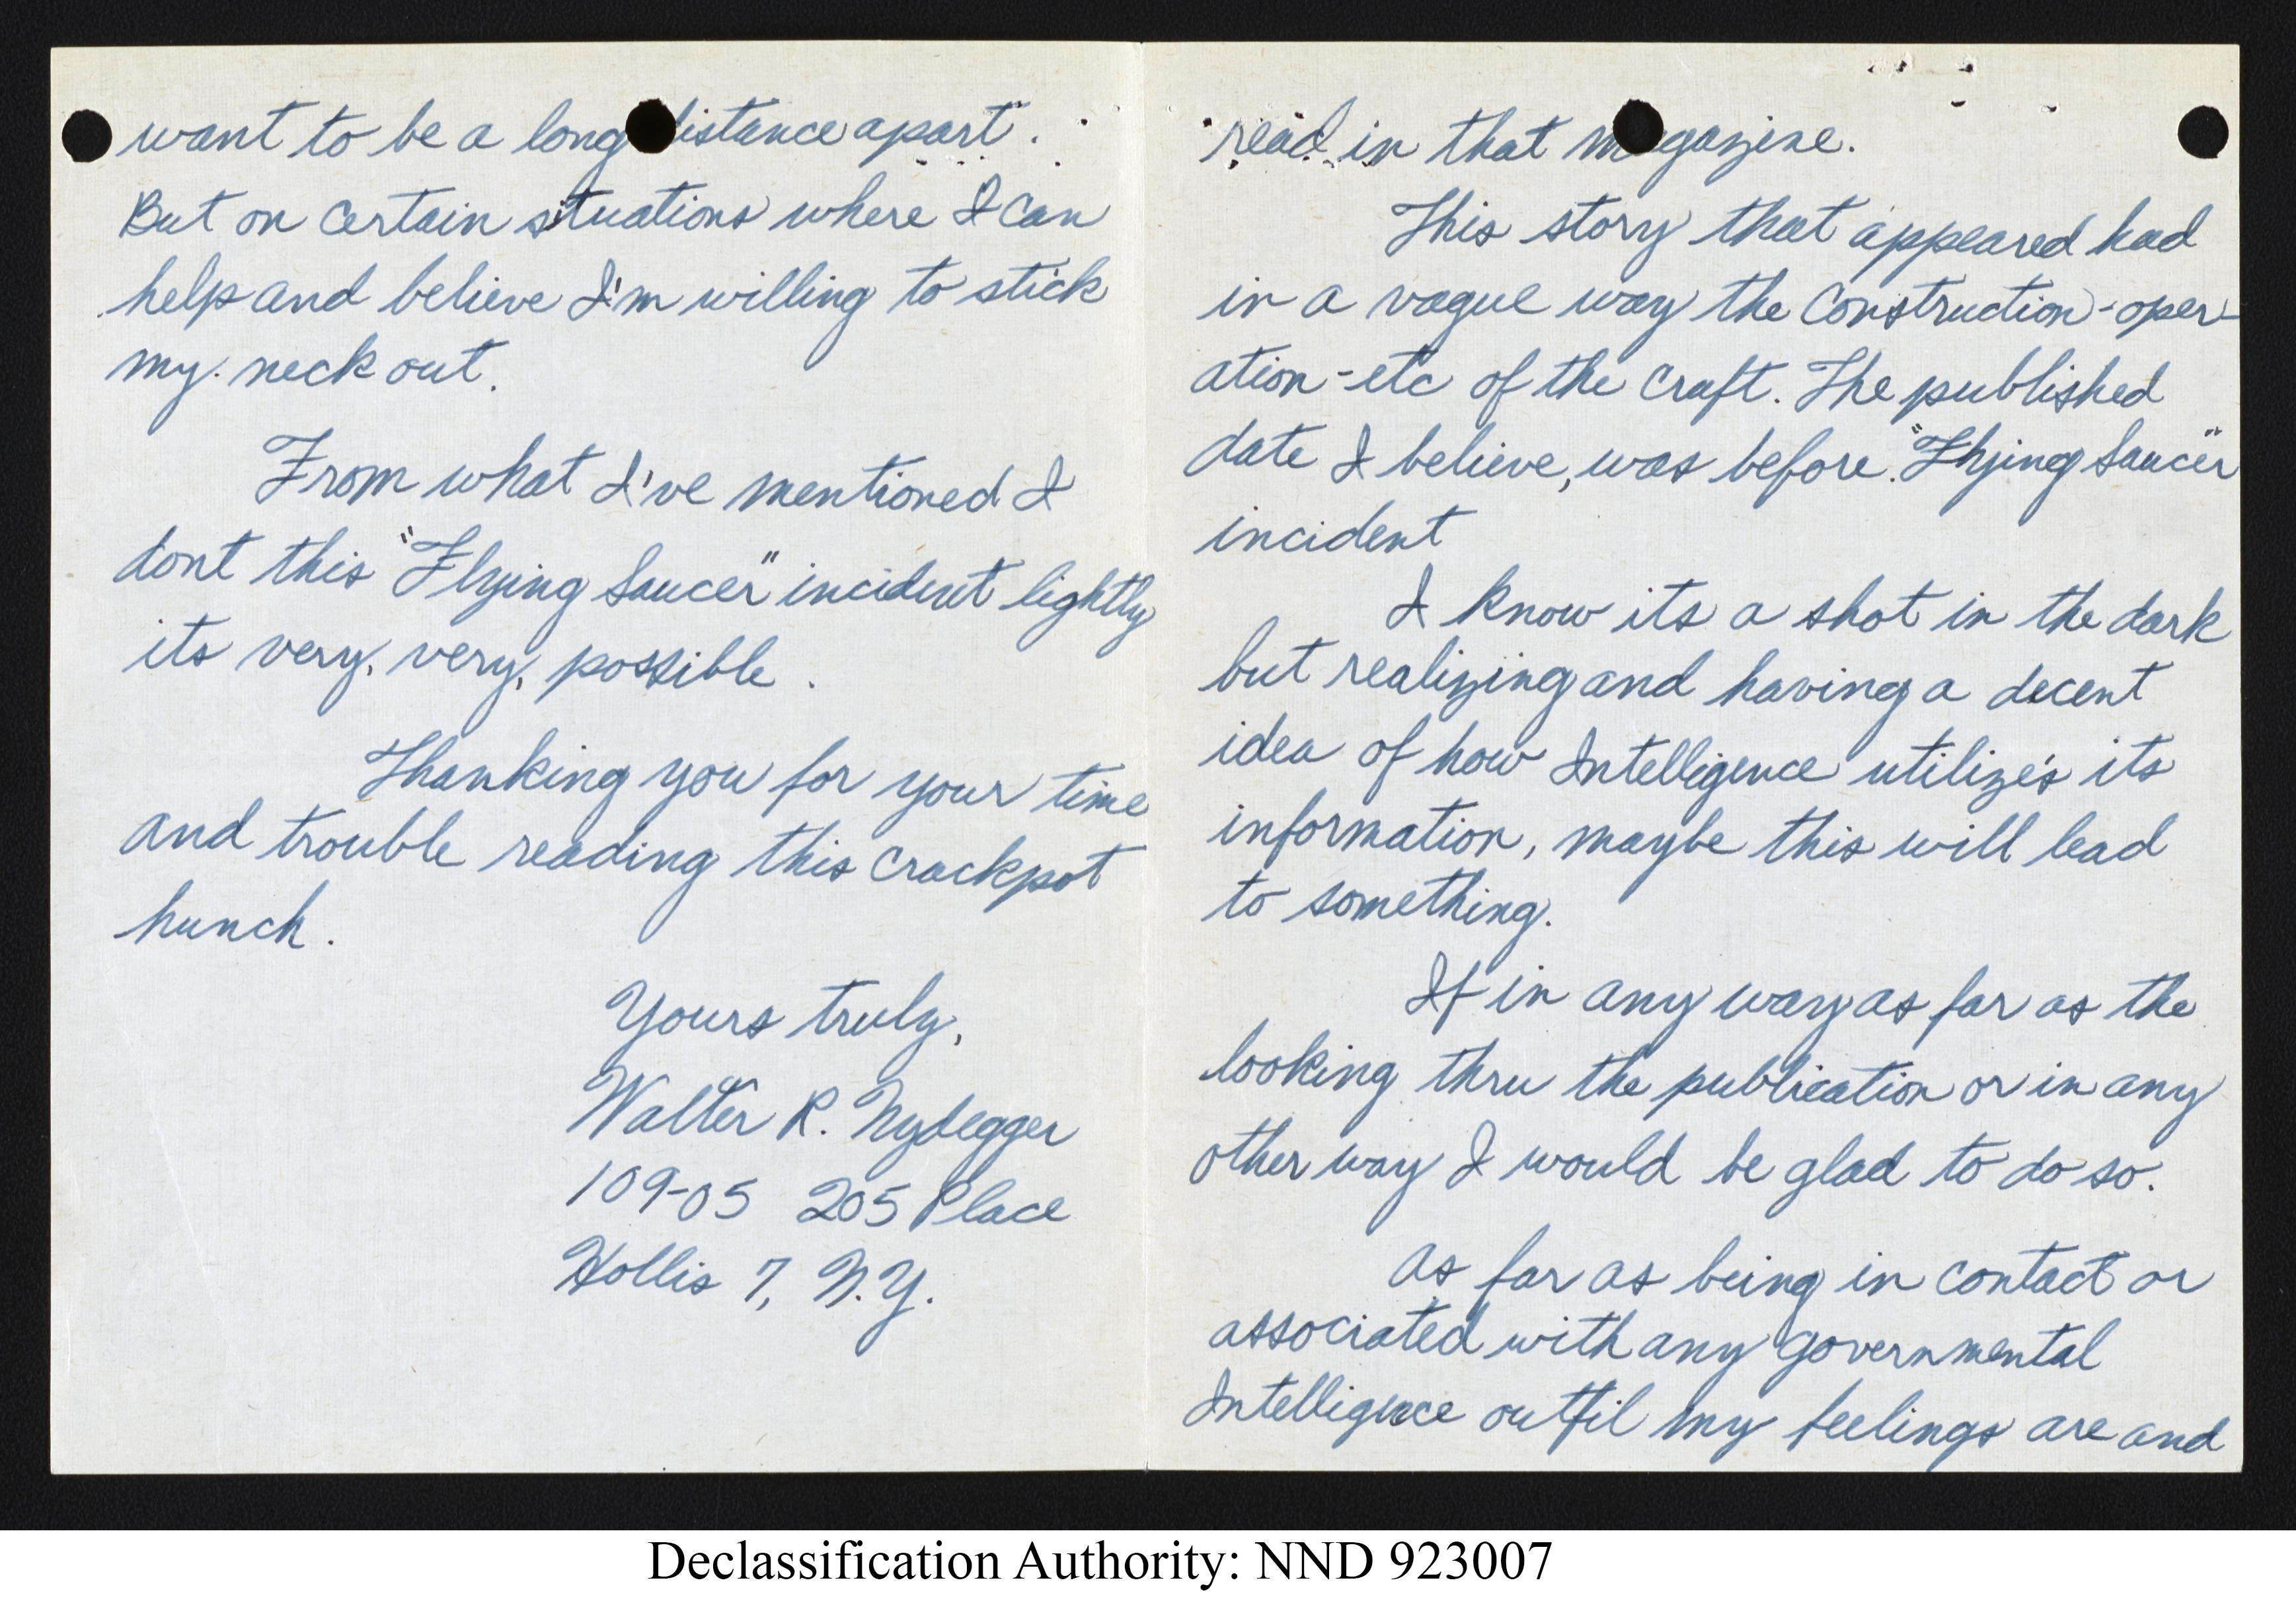 want to be a long distance apart".
But on certain situations where I can
help and believe I'm willing to stick
my neck out.
From what I've mentioned I
dont this "Flying Saucer" incident lightly
its very, very, possible.
Thanking you for your time
and trouble reading this crackpot
hunch.
Yours truly,
Walter R. Nydegger
109-05 205 Place
Hollis 7, N.Y.
read in that magazine.
This story that appeared had
in a vague way the construction-oper-
ation-etc of the craft. The published
date I believe, was before "Flying Saucer"
incident
I know its a shot in the dark
but realizing and having a decent
idea of how Intelligence utilize's its
information, maybe this will lead
to something.
If in any way as far as the
looking thru the publication or in any
other way I would be glad to do so.
As far as being in contact or
associated with any governmental
Intelligence outfit my feelings are and
Declassification Authority: NND 923007